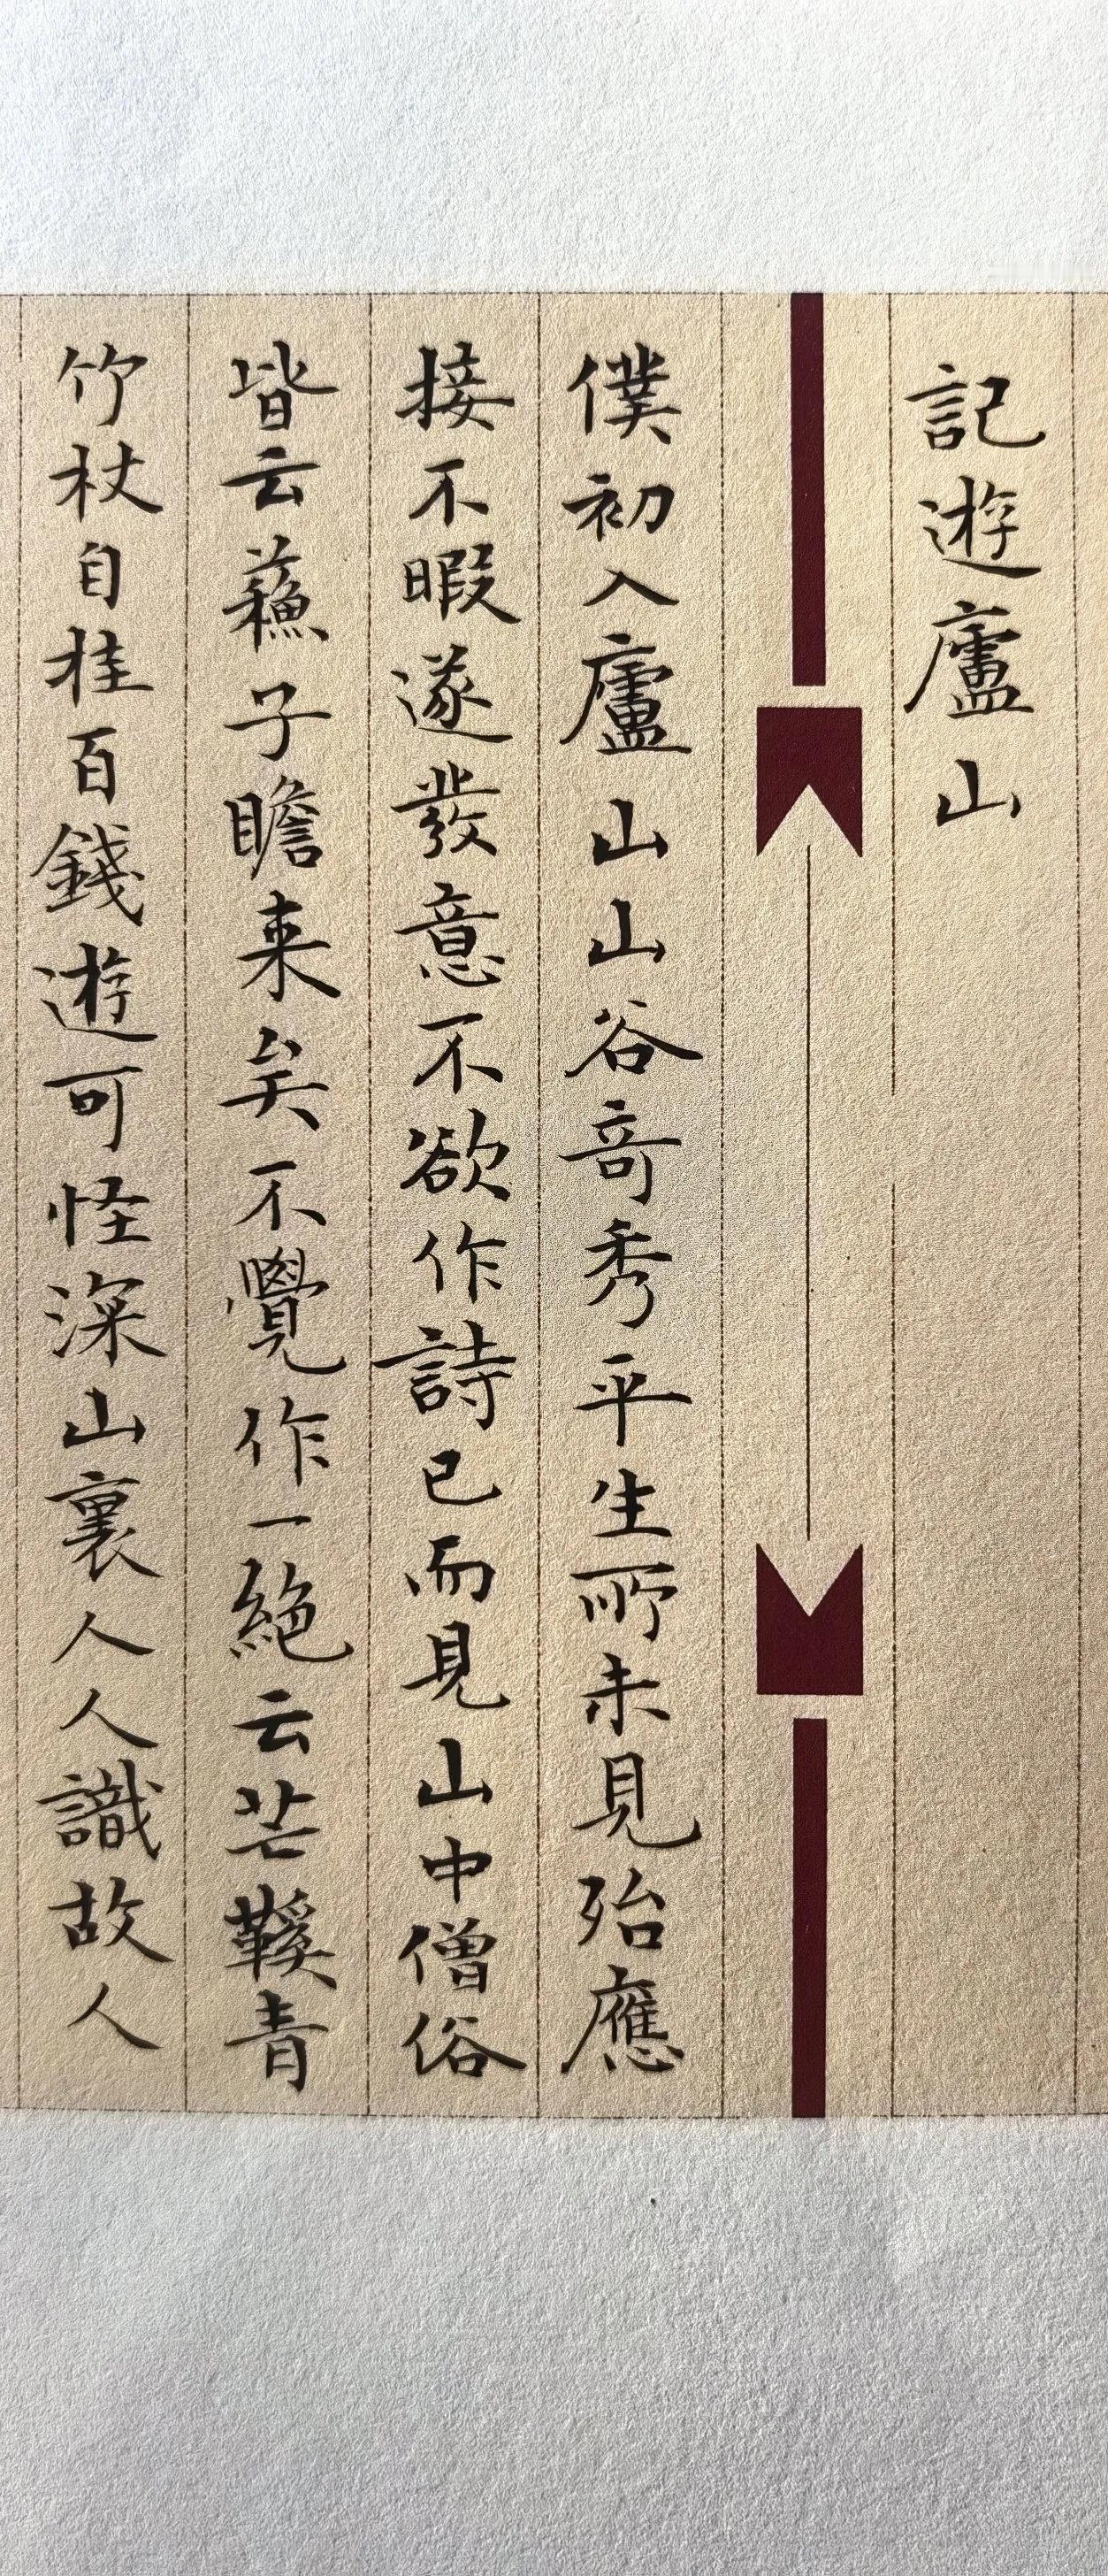 記遊廬山
僕初入廬山山谷奇秀平生所未見殆應
接不暇遂發意不欲作詩已而見山中僧俗
皆云蘓子瞻来矣不覺作一絕云芒鞵青
竹杖自挂百錢遊可怪深山裏人人識故人